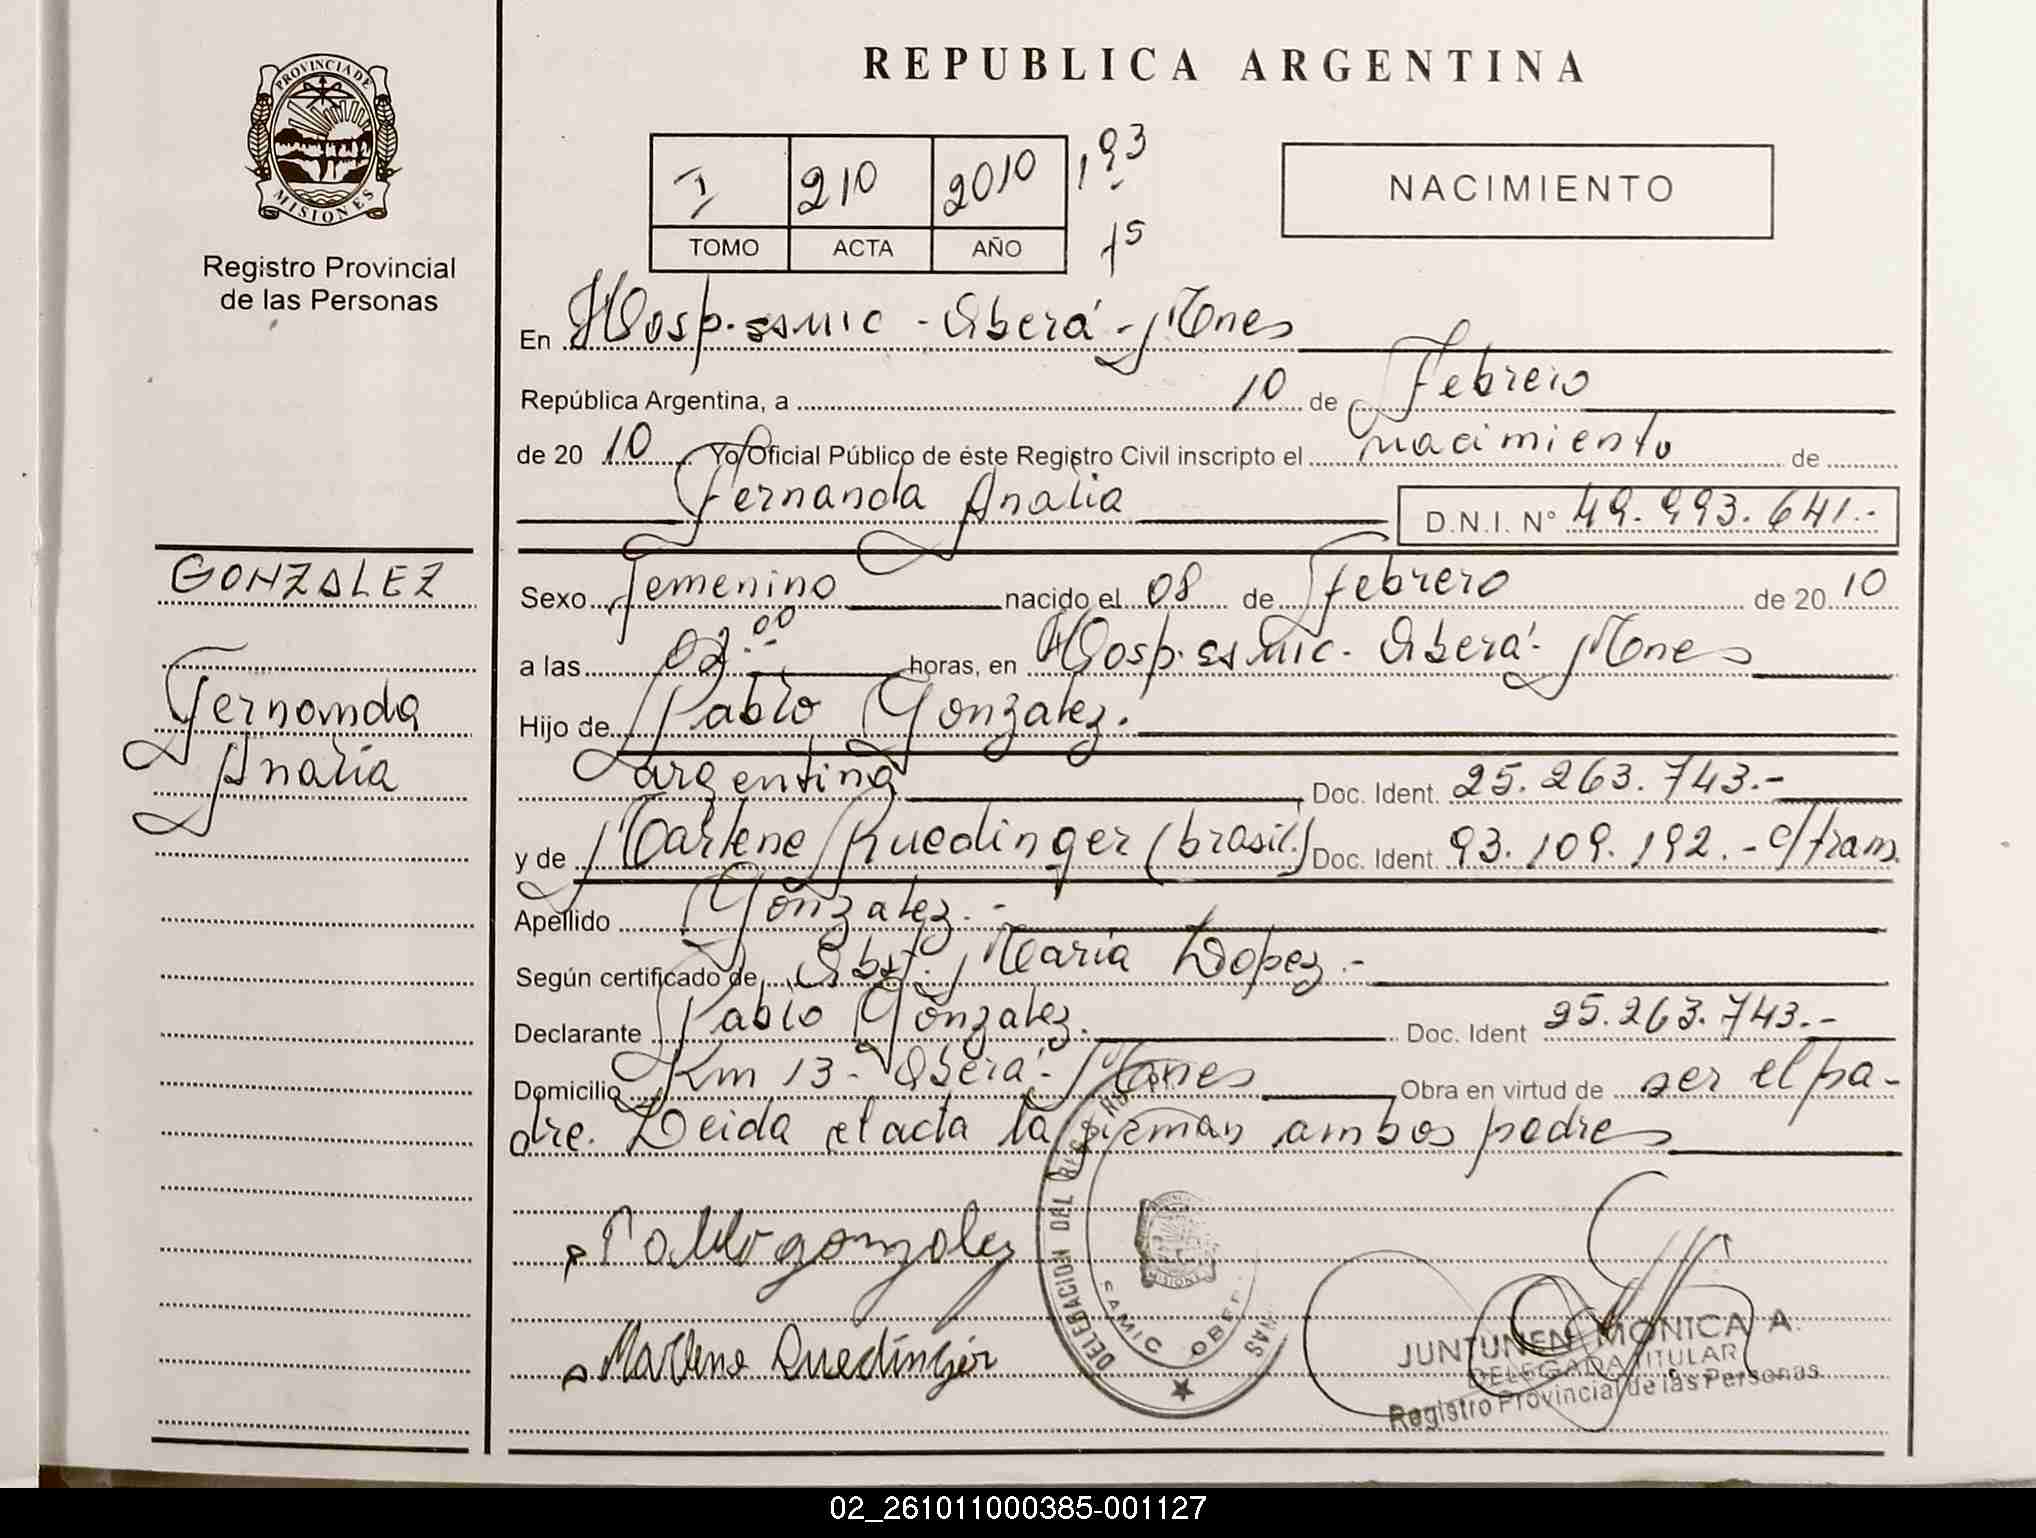 PROVINCIA DE
MISIONES
Registro Provincial
de las Personas
GONZALEZ
Fernanda
Analia
REPUBLICA ARGENTINA
I 210 2010 193
TOMO ACTA AÑO 15
NACIMIENTO
En Hosp. SAMIC - Oberá - Mnes
República Argentina, a 10 de Febrero
de 20 10 Yo Oficial Público de éste Registro Civil inscripto el nacimiento de
Fernanda Analia D.N.I. N° 49.993.641.-
Sexo femenino nacido el 08 de febrero de 20 10
a las 02:00 horas, en Hosp. SAMIC - Oberá - Mnes
Hijo de Pablo Gonzalez.
argentina Doc. Ident. 25.263.743.-
y de Marlene Ruedinger (brasil.) Doc. Ident. 93.109.192.- c/tram.
Apellido Gonzalez.-
Según certificado de Obst. Maria Lopez.-
Declarante Pablo Gonzalez. Doc. Ident 25.263.743.-
Domicilio Km 13 - Oberá - Mnes Obra en virtud de ser el pa-
dre. Leida el acta la firman ambos padres
Pablo gonzalez
Marlene Ruedinger
DELEGACION DEL REG
SAMIC OBE
MISIONES
JUNTUNEN MONICA A.
DELEGADA TITULAR
Registro Provincial de las Personas
02_261011000385-001127